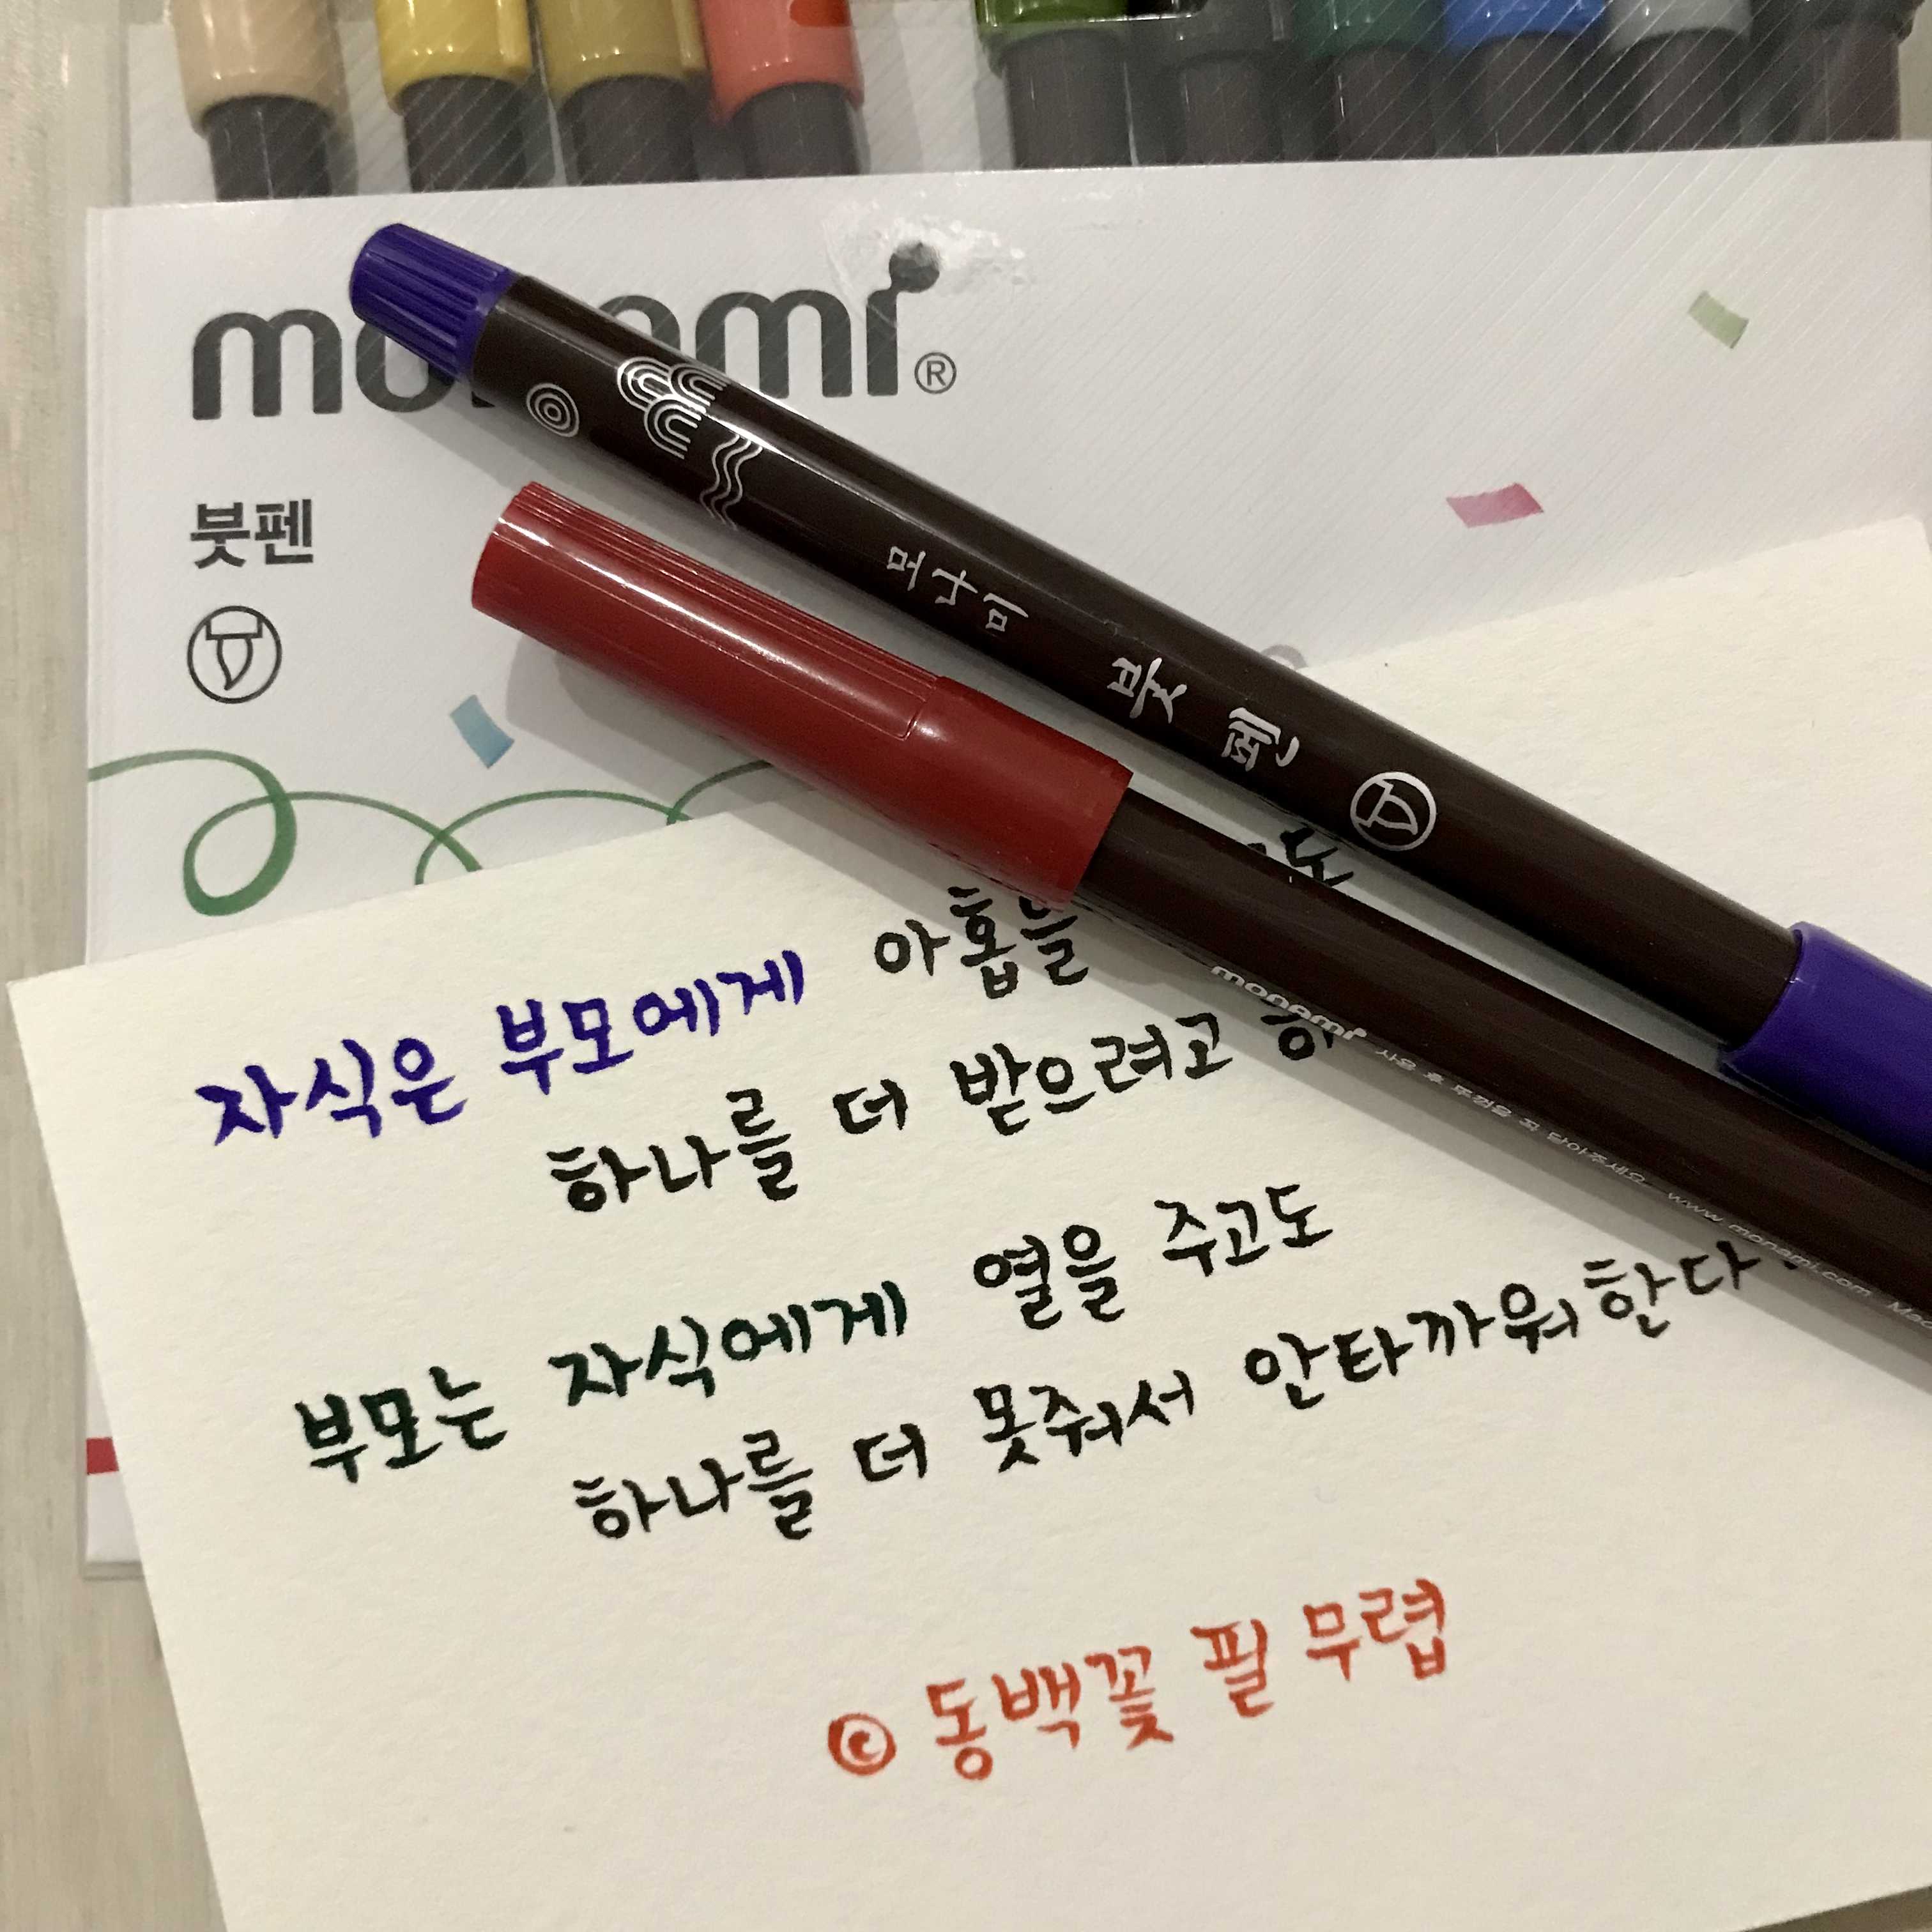 monami®
붓펜
모나미 붓펜
자식은 부모에게 아홉을
하나를 더 받으려고 하
monami 사용 후 뚜껑을 꼭 닫아주십시오. www.monami.com
부모는 자식에게 열을 주고도
하나를 더 못줘서 안타까워한다.
© 동백꽃 필 무렵